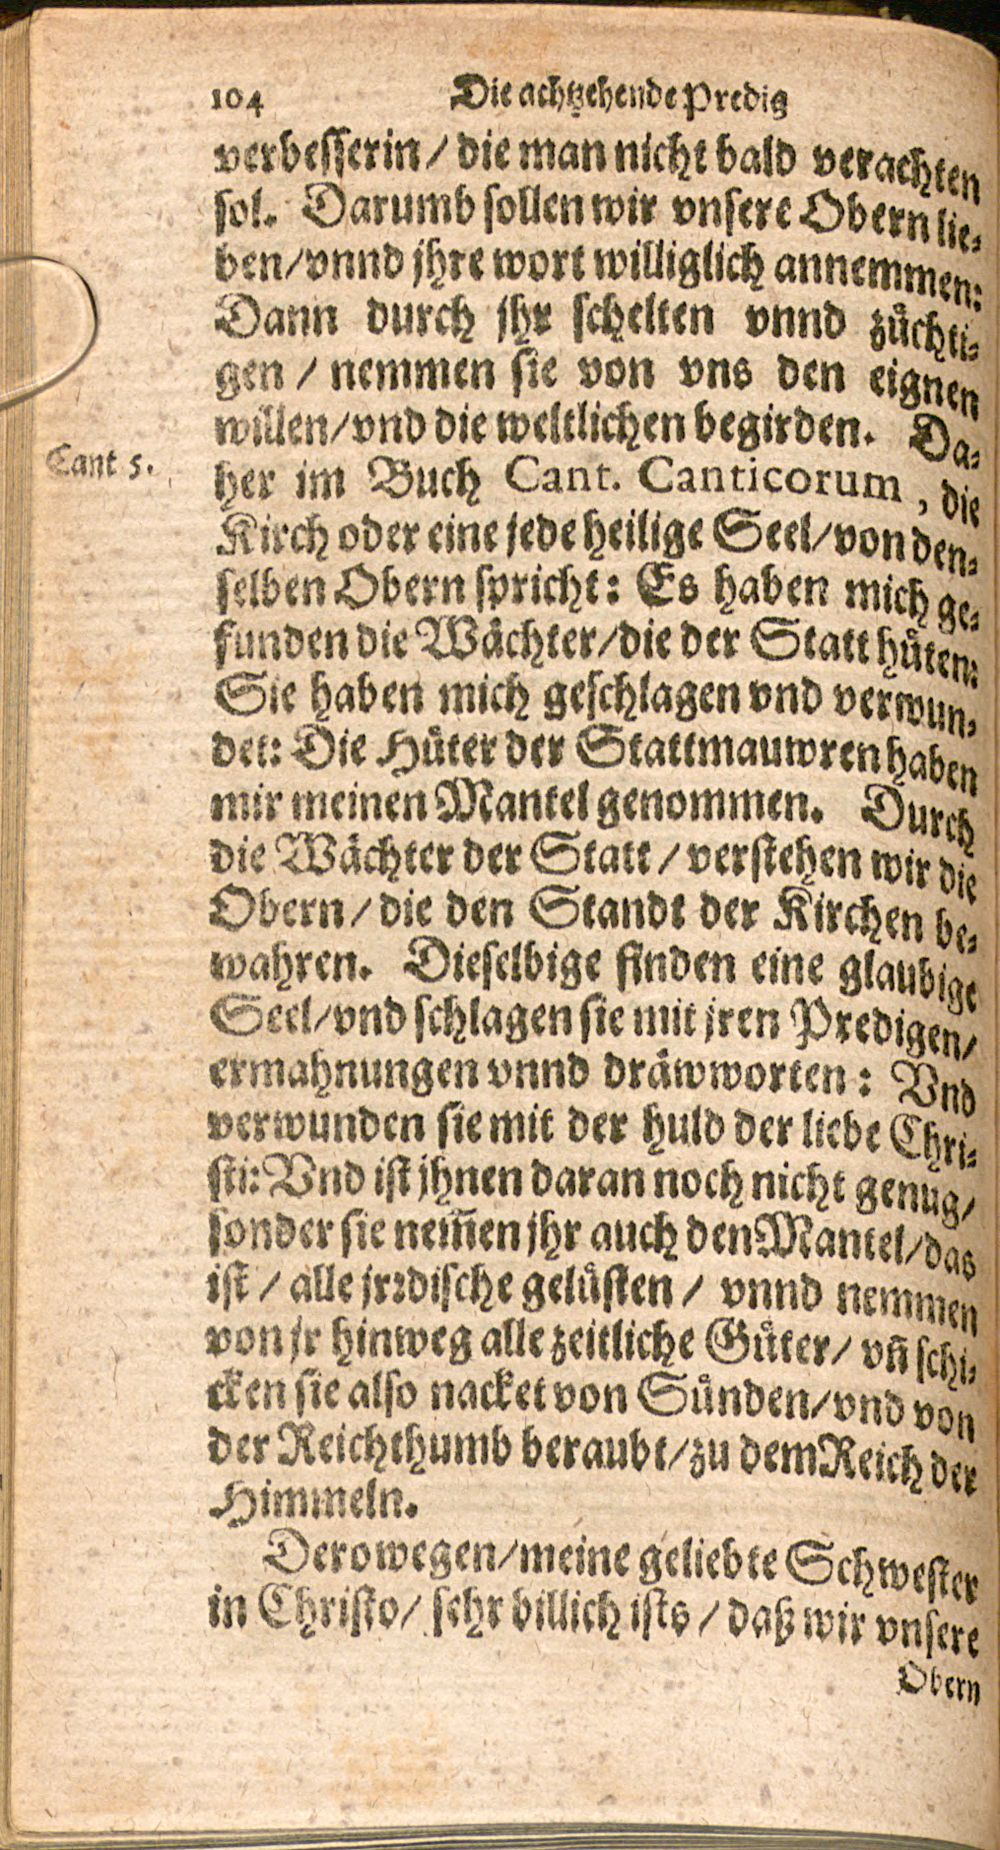 104 Die achtzehende Predig
verbesserin / die man nicht bald verachten
sol. Darumb sollen wir vnsere Obern lie⸗
ben/vnnd jhre wort williglich annemmen:
Dann durch jhr schelten vnnd zuͤchti⸗
gen / nemmen sie von vns den eignen
willen/vnd die weltlichen begirden. Da⸗
Cant 5.
her im Buch Cant. Canticorum, die
Kirch oder eine jede heilige Seel/von den⸗
selben Obern spricht: Es haben mich ge⸗
funden die Waͤchter/die der Statt huͤten:
Sie haben mich geschlagen vnd verwun⸗
det: Die Huͤter der Stattmauwren haben
mir meinen Mantel genommen. Durch
die Waͤchter der Statt / verstehen wir die
Obern / die den Standt der Kirchen be⸗
wahren. Dieselbige finden eine glaubige
Seel/vnd schlagen sie mit jren Predigen/
ermahnungen vnnd draͤwworten: Vnd
verwunden sie mit der huld der liebe Chri⸗
sti: Vnd ist jhnen daran noch nicht genug/
sonder sie nem̃en jhr auch den Mantel/das
ist / alle jrꝛdische geluͤsten / vnnd nemmen
von jr hinweg alle zeitliche Guͤter/ vñ schi⸗
cken sie also nacket von Suͤnden/vnd von
der Reichthumb beraubt/zu dem Reich der
Himmeln.
Derowegen/meine geliebte Schwester
in Christo/ sehr billich ists / daß wir vnsere
Obern